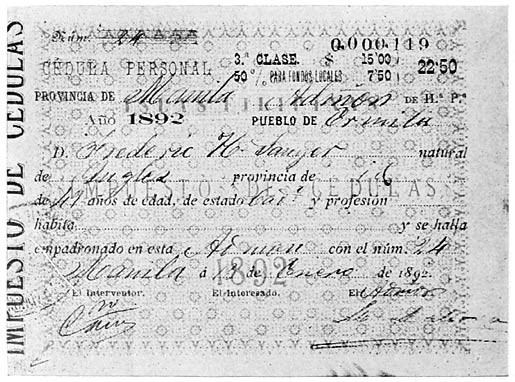 Núm. 24
0.000.119
CÉDULA PERSONAL 3.ª CLASE. $ 15'00 22'50
50 % PARA FONDOS LOCALES 7'50
PROVINCIA DE Manila Admón DE H.ª P.ª
Año 1892 PUEBLO DE Ermita
D. Frederic H. Sawyer natural
de Inglas provincia de id
de años de edad, de estado y profesión
habita y se halla
empadronado en esta Admon con el núm. 24
Manila á de Enero de 1892.
El Interventor. El Interesado. El
IMPUESTO DE CEDULAS
IMPUESTO DE CEDULAS
1892